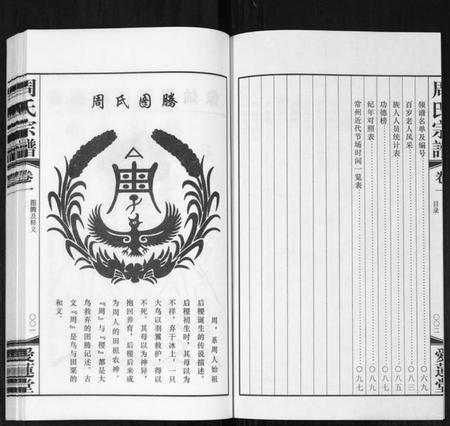 周氏宗譜
卷一
目录
〇〇二
愛蓮堂
领谱名单及编号……〇六九
百岁老人风采……〇八三
族人人员统计表……〇八五
功德榜……〇八七
纪年对照表……〇八九
常州近代节场时间一览表……〇九七
周氏图腾
周，系周人始祖
后稷诞生的传说描述。
后稷初生，其母以为
不祥，弃于冰上，一只
大鸟以羽翼救护，得以
不死。其母以为神异，
抱回养育，后稷后来成
为周人的田祖农神。
『周』与『稷』都是大
鸟救弃的图腾记述。古
文『周』是鸟与田粟的
和文。
周氏宗譜
卷一
图腾及释义
〇〇一
愛蓮堂